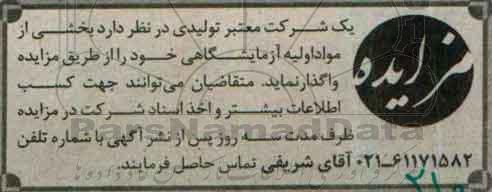 مزایده
یک شرکت معتبر تولیدی در نظر دارد بخشی از
مواد اولیه آزمایشگاهی خود را از طریق مزایده
واگذار نماید. متقاضیان می‌توانند جهت کسب
اطلاعات بیشتر و اخذ اسناد شرکت در مزایده
ظرف مدت سه روز پس از نشر آگهی با شماره تلفن
۰۲۱-۶۱۱۷۱۵۸۲ آقای شریفی تماس حاصل فرمایند.
ParsNamadData
۲۱۰